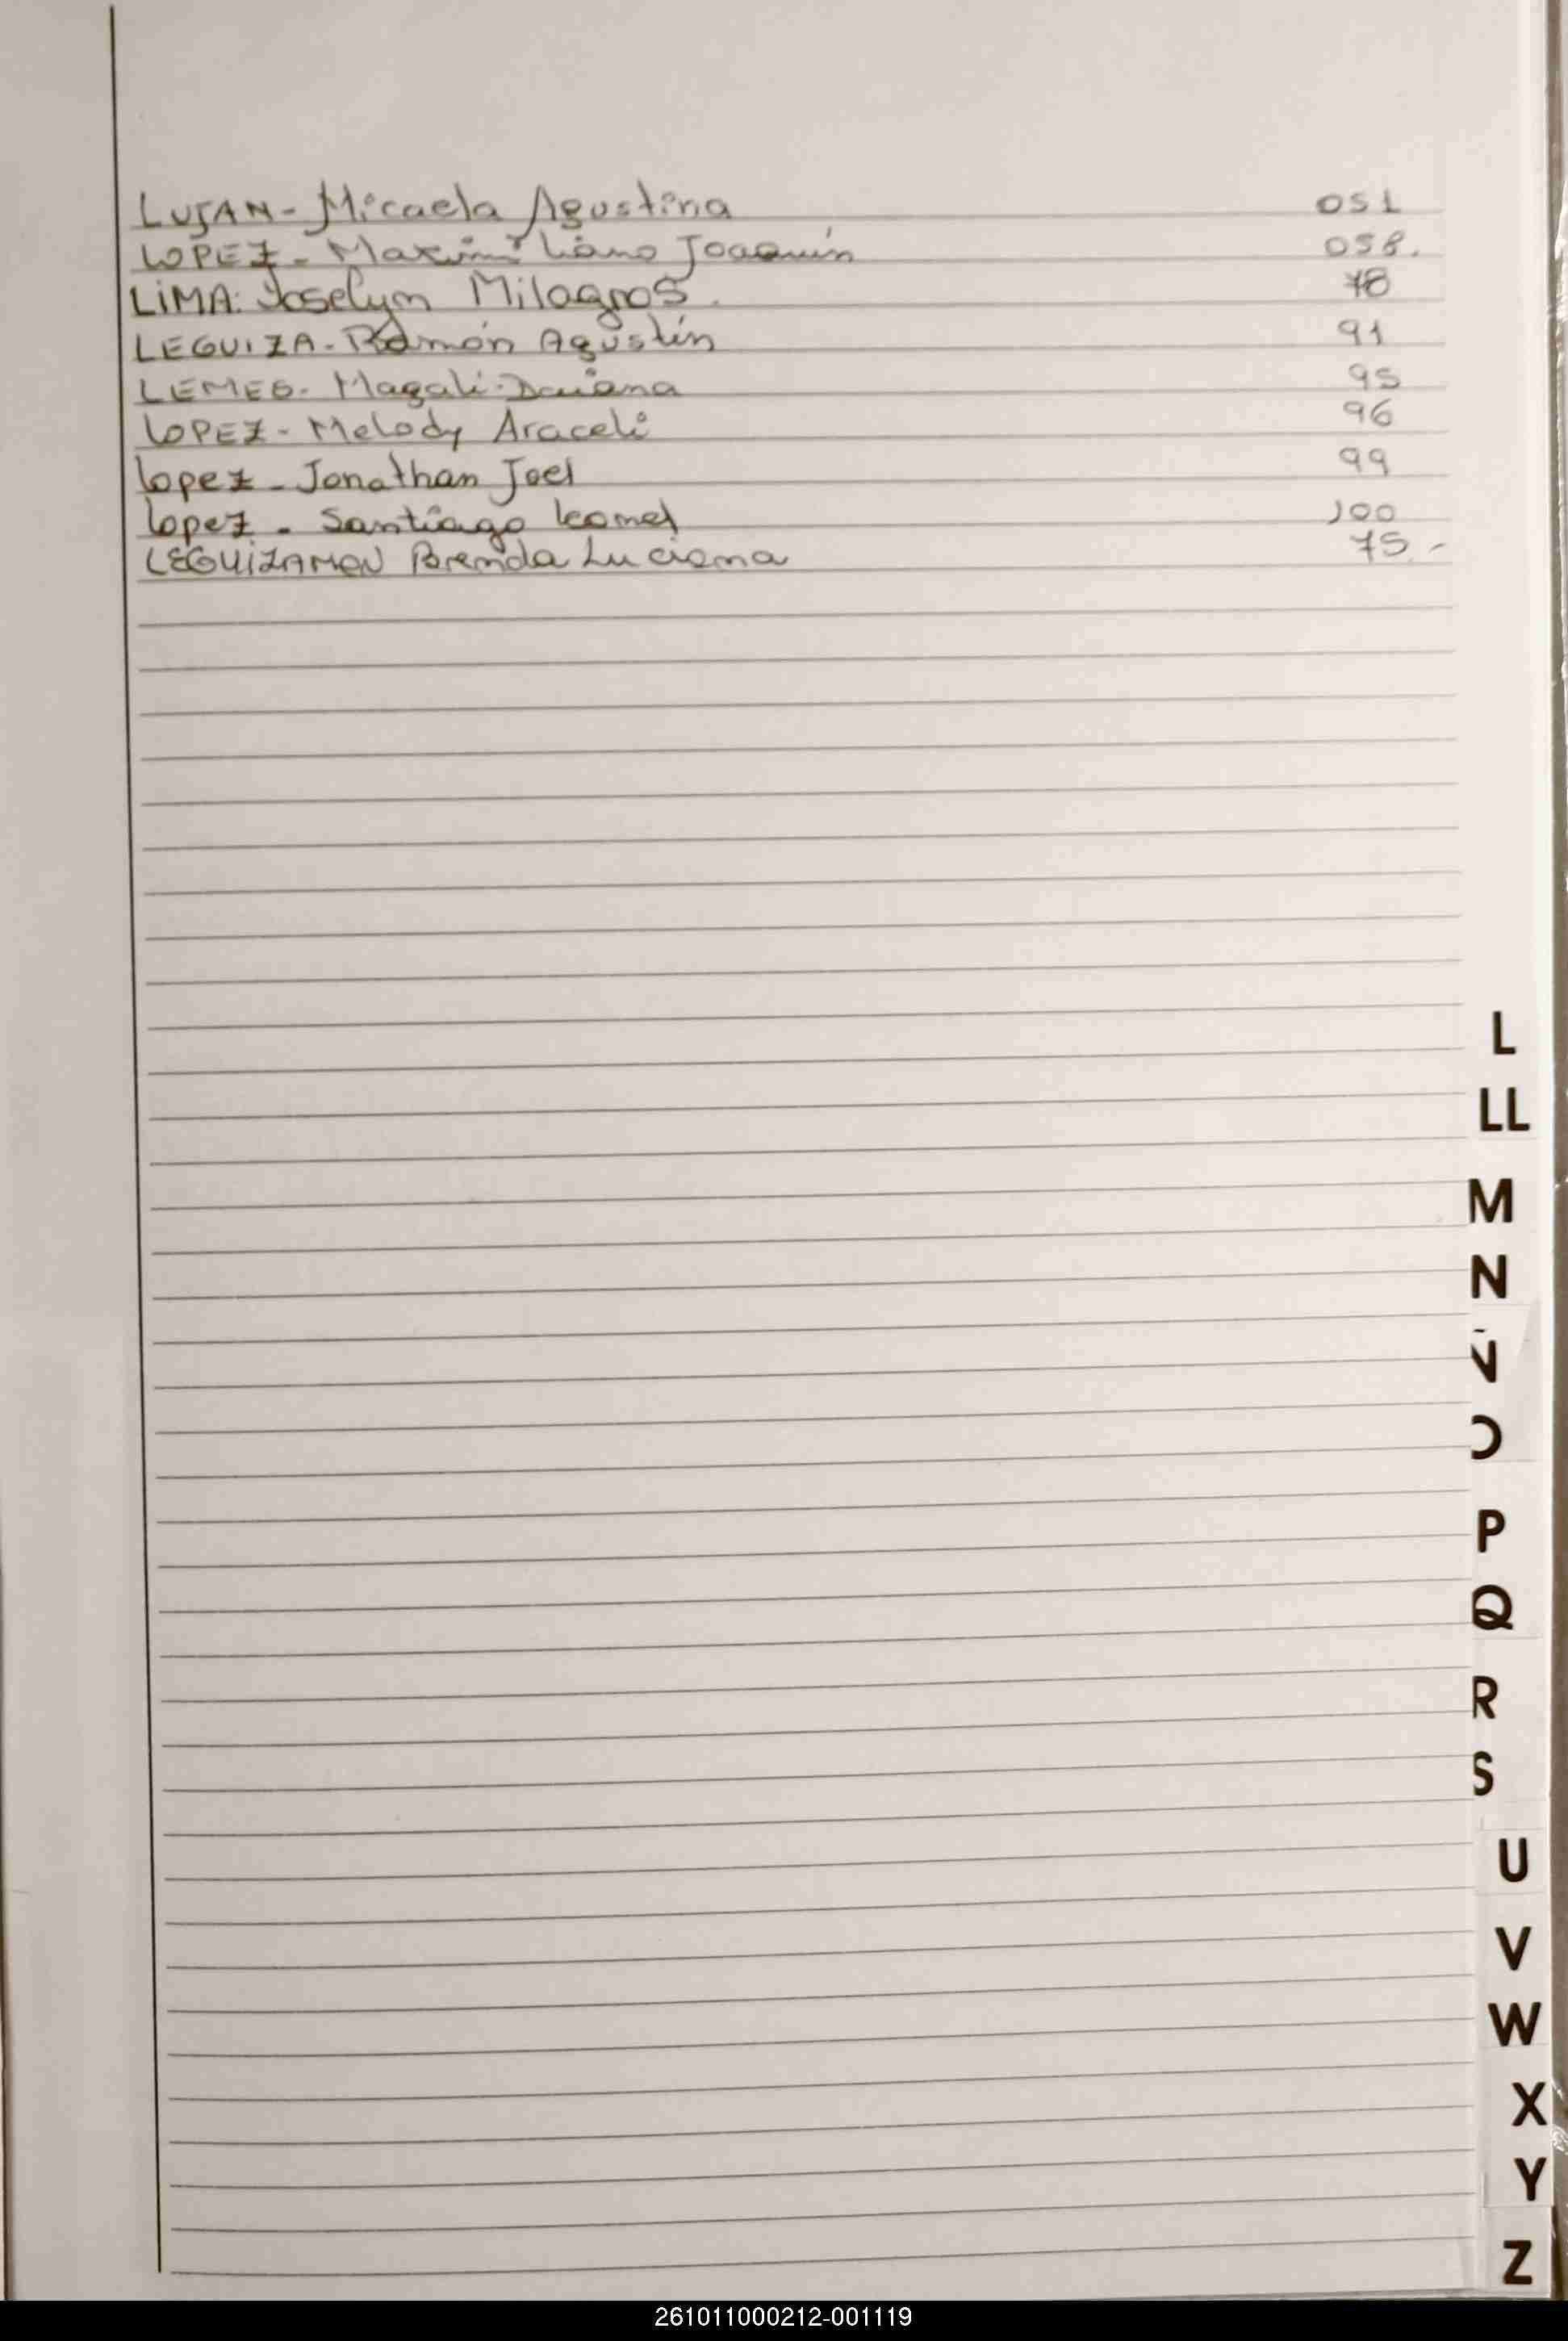 LUJAN - Micaela Agustina 051
LOPEZ - Maximiliano Joaquín 058.
LIMA: Joselym Milagros. 78
LEGUIZA - Ramón Agustín 91
LEMES - Magali Daiana 95
LOPEZ - Melody Araceli 96
Lopez - Jonathan Joel 99
Lopez - Santiago Leonel 100
LEGUIZAMON Brenda Luciana 75.-
L
LL
M
N
Ñ
O
P
Q
R
S
U
V
W
X
Y
Z
261011000212-001119